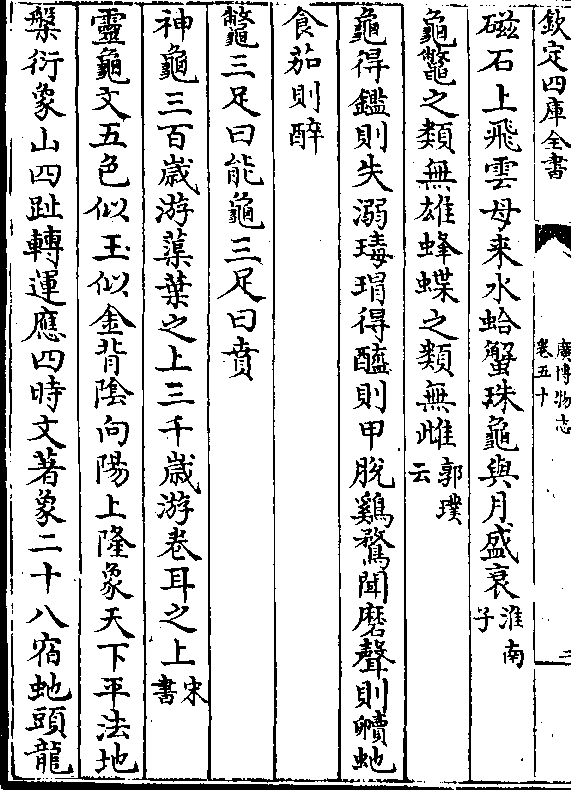 欽定四庫全書
廣博物志
卷五十
三
磁石上飛雲母来水蛤蟹珠龜與月盛衰淮南
子
龜鼈之類無雄蜂蝶之類無雌郭璞
云
龜得鑑則失溺瑇瑁得醯則甲脫鷄鶩聞磨聲則㱩虵
食茄則醉
鼈三足曰能龜三足曰賁
神龜三百歳游蕖葉之上三千歳游卷耳之上宋
書
靈龜文五色似玉似金背陰向陽上隆象天下平法地
槃衍象山四趾轉運應四時文著象二十八宿虵頭龍